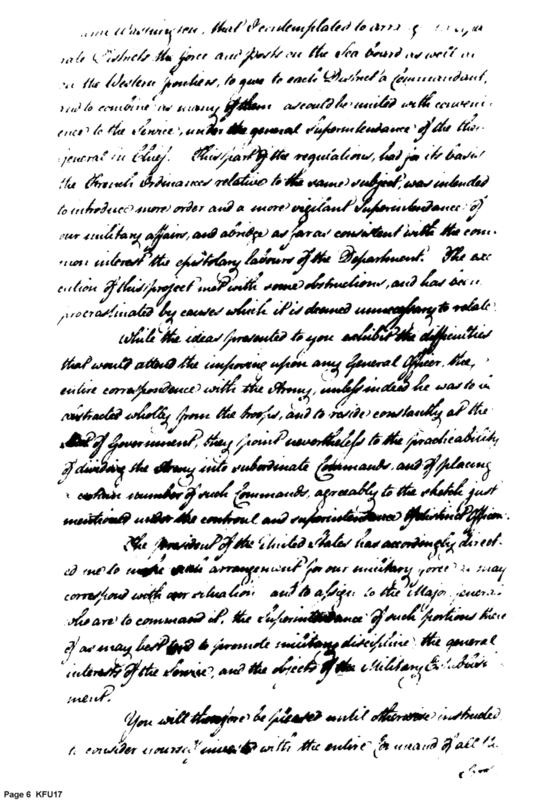 Washington, that I contemplated to
rate Districts the force and posts on the Sea board as well as
on the Western frontiers, to give to each District a Commandant,
and to combine as many of them as could be united with conveni-
ence to the Service, under the general Superintendance of the
General in Chief. This part of the regulations, had for its basis
the French Ordinances relative to the same subject, was intended
to introduce more order and a more vigilant Superintendance of
our military affairs, and abridge as far as consistent with the com-
mon interest the epistolary labours of the Department. The exe
cution of this project met with some obstructions, and has been
procrastinated by causes which it is deemed unnecessary to relate
While the ideas presented to you exhibit the difficulties
that would attend the imposing upon any General Officer, the
entire correspondence with the Army, unless indeed he was to
abstracted wholly from the troops, and to reside constantly at the
Seat of Government, they point nevertheless to the practicability
of dividing the Army into subordinate Commands, and of placing
a certain number of such Commands, agreeably to the sketch just
mentioned under the controul and superintendance of distinct Officers.
The President of the United States has accordingly direct-
ed me to make such arrangement for our military force as may
correspond with our situation and to assign to the Major Generals
who are to command it, the Superintendance of such portions there
of as may best tend to promote military discipline, the general
interests of the Service, and the objects of the Military Establish
ment.
You will therefore be pleased until otherwise instructed
to consider yourself invested with the entire Command of all the
Page 6 KFU17